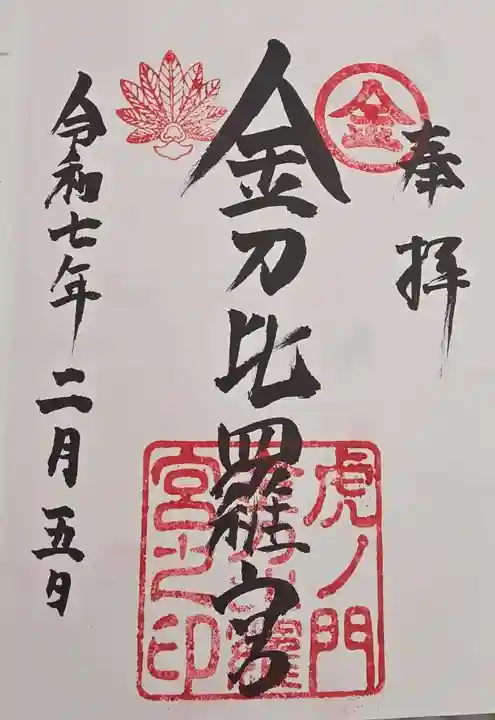 奉拝
金
金刀比羅宮
虎ノ門
金刀比羅
宮之印
令和七年
二月五日